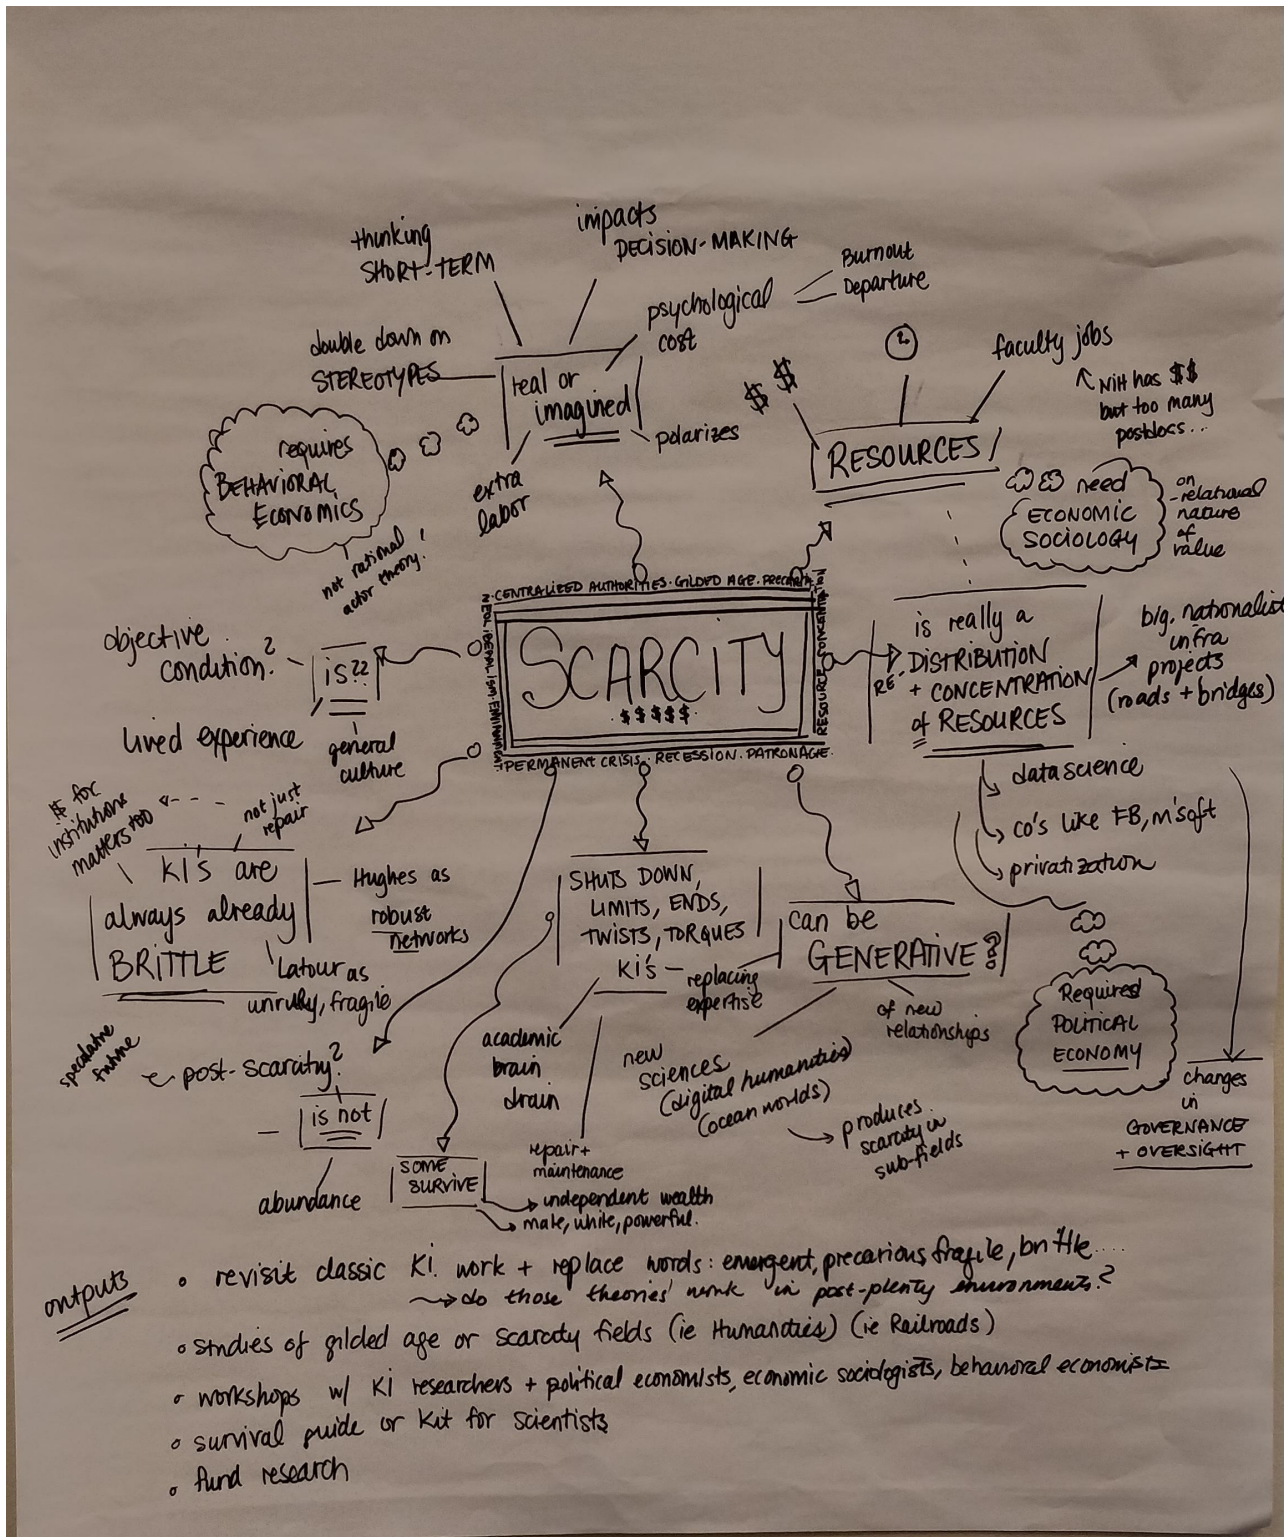 thinking
SHORT-TERM
impacts
DECISION-MAKING
psychological
cost
Burnout
Departure
double down on
STEREOTYPES
real or
imagined
polarizes
extra
labor
requires
BEHAVIORAL
ECONOMICS
not rational
actor theory!
$$
faculty jobs
NIH has $$
but too many
postdocs...
RESOURCES
need
ECONOMIC
SOCIOLOGY
on
relational
nature
of
value
CENTRALIZED AUTHORITIES. GILDED AGE.
SCARCITY
$$$$$
RESOURCE CONCENTRATION
PERMANENT CRISIS. RECESSION. PATRONAGE.
NEOLIBERALISM.
objective
condition?
is??
lived experience
general
culture
is really a
RE-DISTRIBUTION
+ CONCENTRATION
of RESOURCES
big. nationalist
infra
projects
(roads + bridges)
data science
co's like FB, m'soft
privatization
Required
POLITICAL
ECONOMY
changes
in
GOVERNANCE
+ OVERSIGHT
$ for
institutions
matters too
not just
repair
KI's are
always already
BRITTLE
Hughes as
robust
networks
Latour as
unruly, fragile
SHUTS DOWN,
LIMITS, ENDS,
TWISTS, TORQUES
KI's
replacing
expertise
academic
brain
drain
repair +
maintenance
can be
GENERATIVE??
of new
relationships
new
sciences
(digital humanities)
(ocean worlds)
produces
scarcity in
sub-fields
speculative
future
post-scarcity?
is not
abundance
SOME
SURVIVE
independent wealth
male, white, powerful.
outputs
revisit classic KI work + replace words: emergent, precarious, fragile, brittle....
do those theories work in post-plenty environments?
studies of gilded age or scarcity fields (ie Humanities) (ie Railroads)
workshops w/ KI researchers + political economists, economic sociologists, behavioral economists
survival guide or kit for scientists
fund research